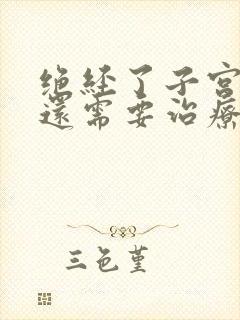 绝经了子宫
還需要治療
三色堇